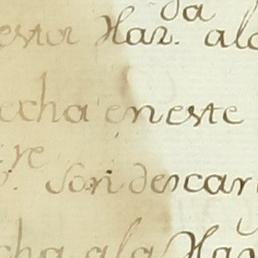 da
esta Haz.ª ala
echa en este
re
Son descar
cha ala Haz